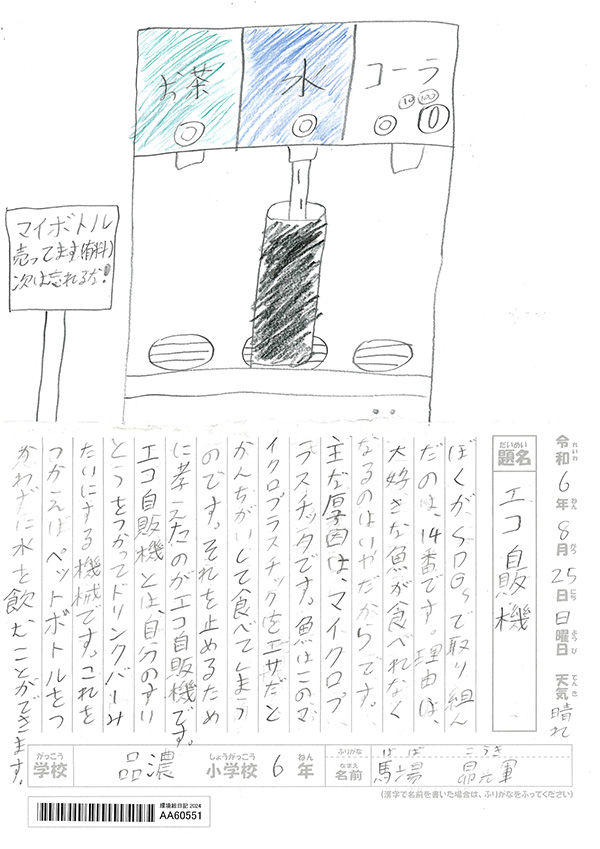 お茶
水
コーラ
10
100
マイボトル
売ってます(有料)
次は忘れるな!
令和6年8月25日日曜日 天気 晴れ
れいわ ねん がつ にち ようび てんき
だいめい
題名
エコ自販機
ぼくがSDGsで取り組ん
だのは、14番です。理由は、
大好きな魚が食べれなく
なるのはいやだからです。
主な原因は、マイクロプ
ラスチックです。魚はこのマ
イクロプラスチックをエサだと
かんちがいして食べてしまう
のです。それを止めるため
に考えたのがエコ自販機です。
エコ自販機とは、自分のすい
とうをつかってドリンクバーみ
たいにする機械です。これを
つかえばペットボトルをつ
かわずに水を飲むことができます。
がっこう しょうがっこう ねん
学校 品濃 小学校 6年
ふりがな ばば こうき
なまえ
名前 馬場
(漢字で名前を書いた場合は、ふりがなをふってください)
環境絵日記 2024
AA60551